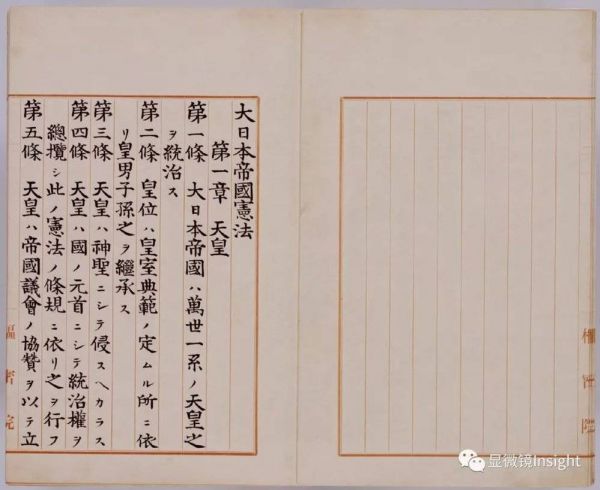 大日本帝國憲法
第一章 天皇
第一條 大日本帝國ハ萬世一系ノ天皇之
ヲ統治ス
第二條 皇位ハ皇室典範ノ定ムル所ニ依
リ皇男子孫之ヲ繼承ス
第三條 天皇ハ神聖ニシテ侵スヘカラス
第四條 天皇ハ國ノ元首ニシテ統治權ヲ
總攬シ此ノ憲法ノ條規ニ依リ之ヲ行フ
第五條 天皇ハ帝國議會ノ協贊ヲ以テ立
显微镜Insight